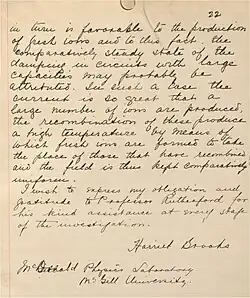 22
in turn is favorable to the production
of fresh ions and to this fact, the
comparatively steady state of the
damping in circuits with large
capacities may probably be
attributed. In such a case the
current is so great that a
large number of ions is produced,
the recombination of these produce
a high temperature by means of
which fresh ions are formed to take
the place of those that have recombined
and the field is thus kept comparatively
uniform.
I wish to express my obligation and
gratitude to Professor Rutherford for
his kind assistance at every stage
of the investigation.
Harriet Brooks
McDonald Physics Laboratory
McGill University.